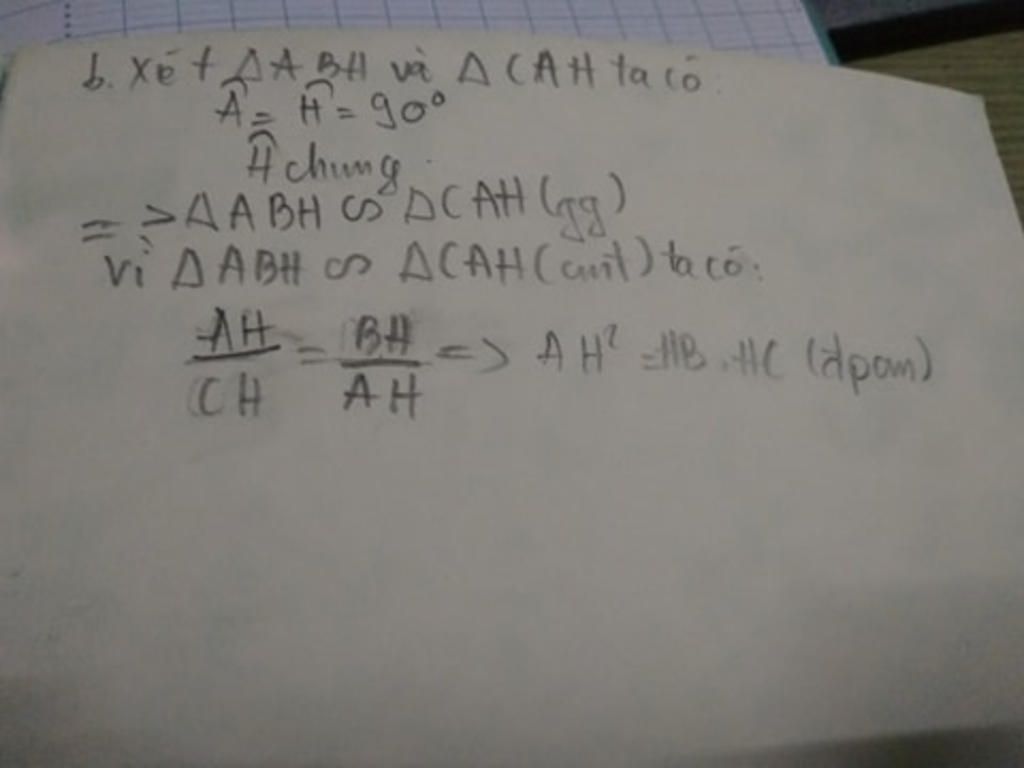 b. Xét ΔABH và ΔCAH ta có:
Â = Ĥ = 90°
Ĥ chung.
=> ΔABH ∽ ΔCAH (gg)
Vì ΔABH ∽ ΔCAH (cmt) ta có:
AH/CH = BH/AH => AH² = HB.HC (đpcm)